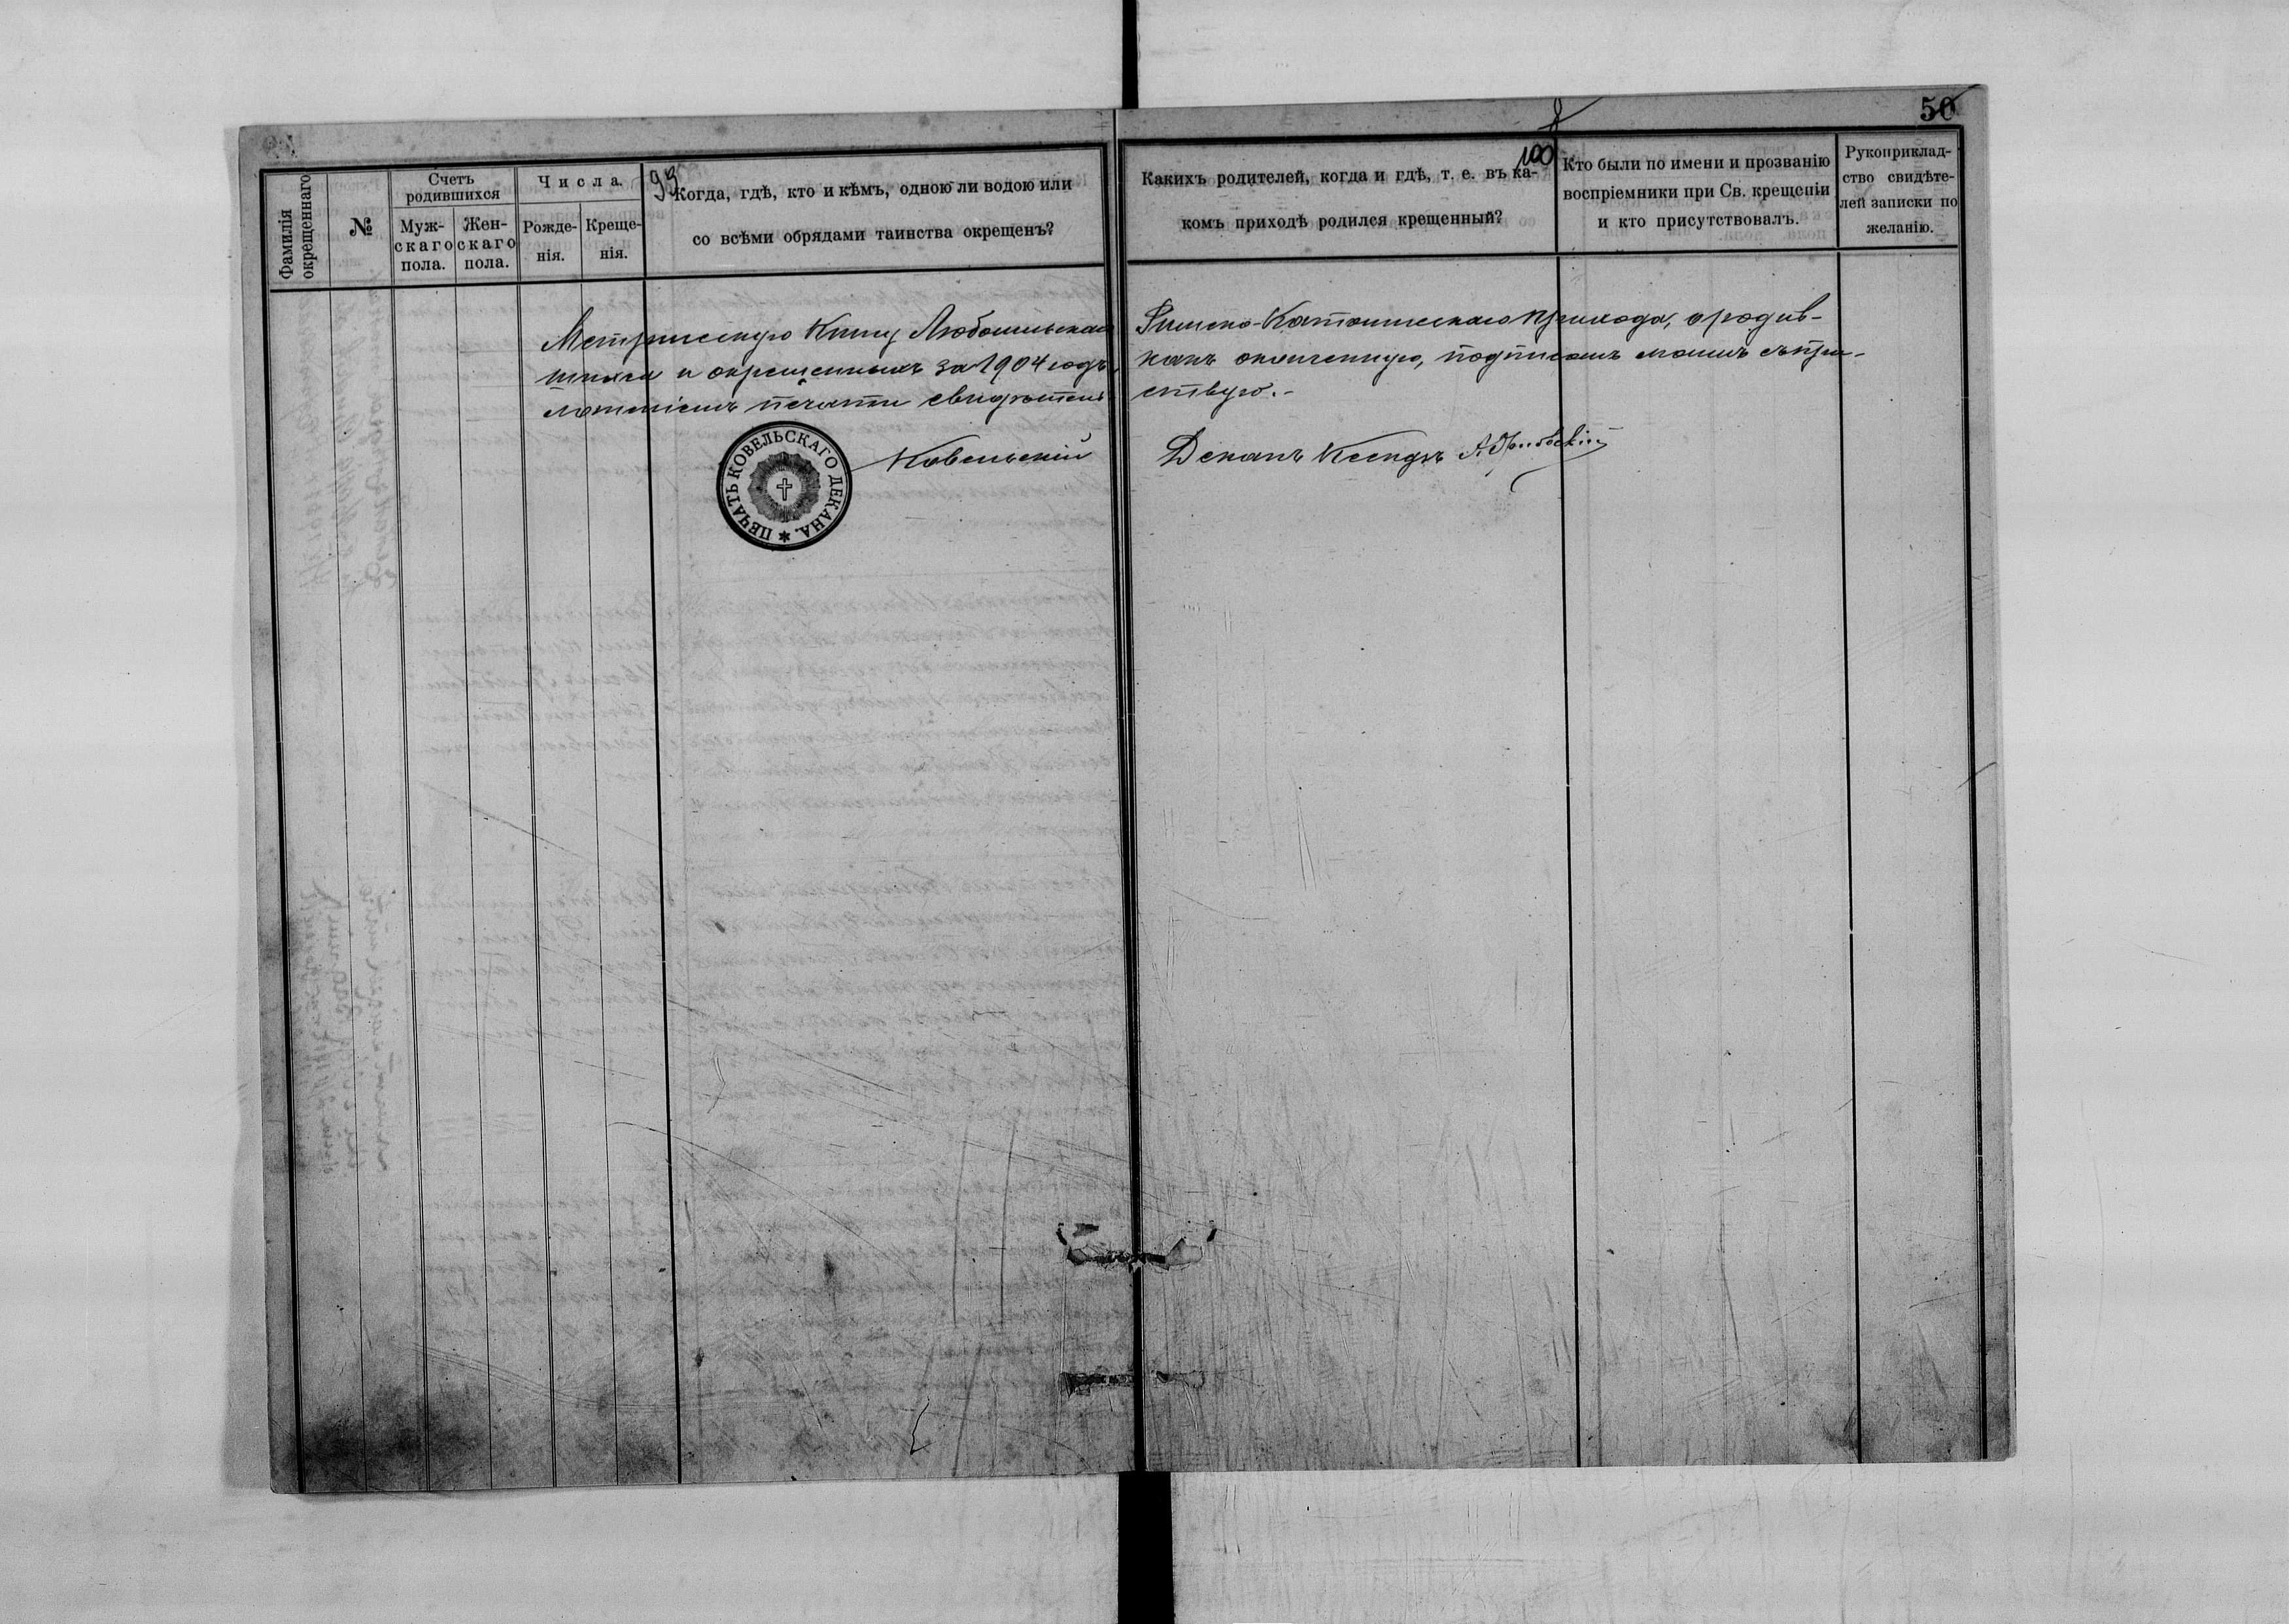 50
99
100
Фамилія
окрещеннаго
№
Счетъ
родившихся
Муж-
скаго
пола.
Жен-
скаго
пола.
Числа.
Рожде-
нія.
Креще-
нія.
Когда, гдѣ, кто и кѣмъ, одною ли водою или
со всѣми обрядами таинства окрещенъ?
Какихъ родителей, когда и гдѣ, т. е. въ ка-
комъ приходѣ родился крещенный?
Кто были по имени и прозванію
воспріемники при Св. крещеніи
и кто присутствовалъ.
Рукоприклад-
ство свидѣте-
лей записки по
желанію.
Метрическую Книгу Любомльскаго Римско-Католическаго прихода, о родив-
шихся и окрещенныхъ за 1904 годъ, какъ оконченную, подписомъ моимъ съ при-
ложеніемъ печати свидѣтельствую.-
Ковельскій Деканъ Ксендзъ
ПЕЧАТЬ КОВЕЛЬСКАГО ДЕКАНА.